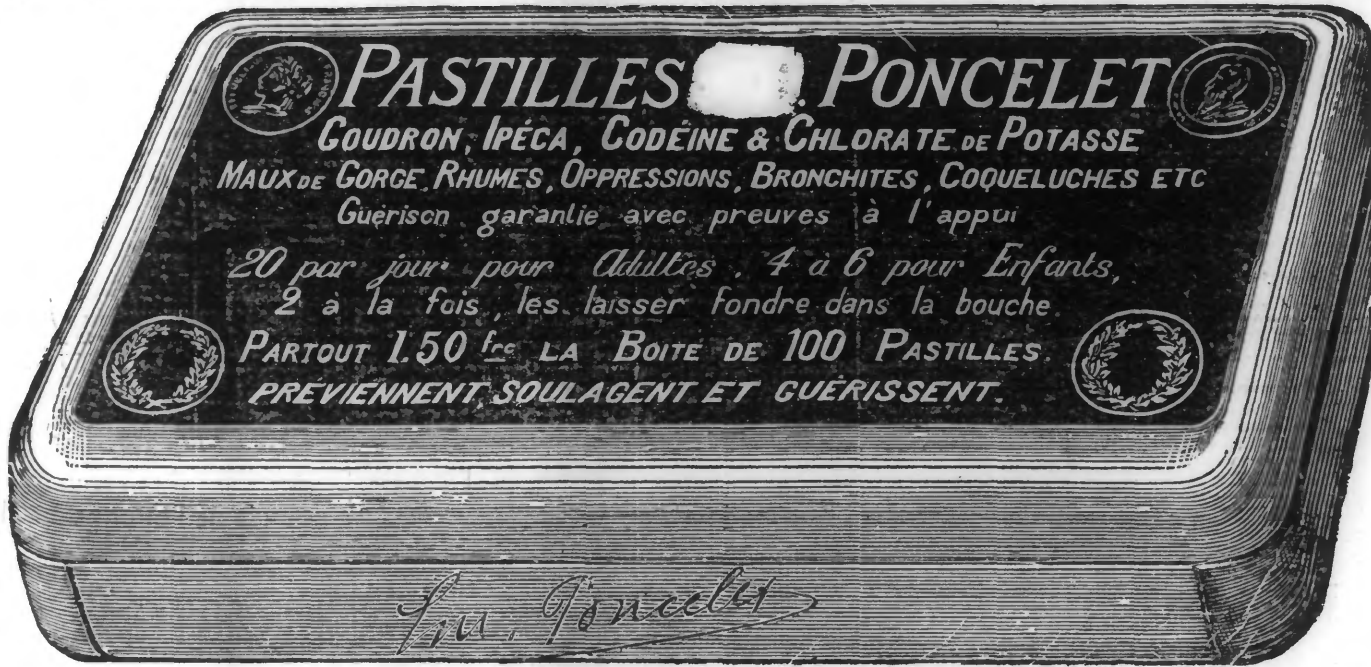 PASTILLES PONCELET
GOUDRON, IPÉCA, CODÉINE & CHLORATE DE POTASSE
MAUX DE GORGE, RHUMES, OPPRESSIONS, BRONCHITES, COQUELUCHES ETC
Guérison garantie avec preuves à l'appui
20 par jour pour Adultes. 4 à 6 pour Enfants,
2 à la fois, les laisser fondre dans la bouche.
PARTOUT 1.50 frc LA BOITE DE 100 PASTILLES.
PRÉVIENNENT, SOULAGENT ET GUÉRISSENT.
Em. Poncelet